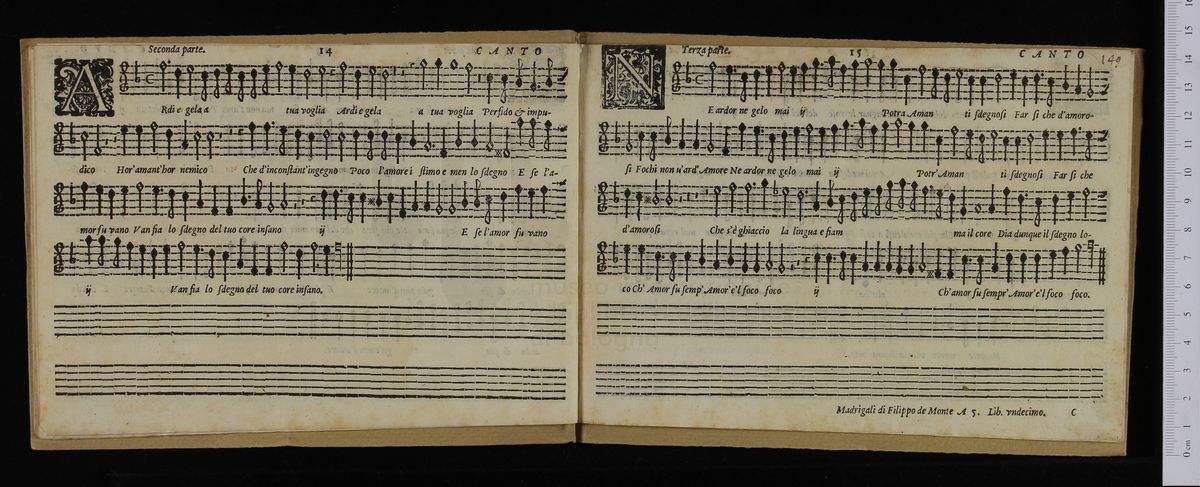 Seconda parte. 14 CANTO
ARdi e gela a tua voglia Ardi e gela a tua voglia Perfido & impu-
dico Hor'amant'hor nemico Che d'inconstant'ingegno Poco l'amore i stimo e men lo sdegno E se l'a-
mor fu vano Van fia lo sdegno del tuo core insano ij E se l'amor fu vano
ij Van fia lo sdegno del tuo core insano.
Terza parte. 15 CANTO 149
NE ardor ne gelo mai ij Potra Aman ti sdegnosi Far si che d'amoro-
si Fochi non u'ard'Amore Ne ardor ne gelo mai ij Potr'Aman ti sdegnosi Far si che
d'amorosi Che s'è ghiaccio la lingua e fiam ma il core Dia dunque il sdegno lo-
co Ch'Amor fu semp'Amor'e'l foco foco ij Ch'amor fu sempr'Amor'e'l foco foco.
Madrigali di Filippo de Monte A 5. Lib. vndecimo. C
0 cm 1 2 3 4 5 6 7 8 9 10 11 12 13 14 15 16